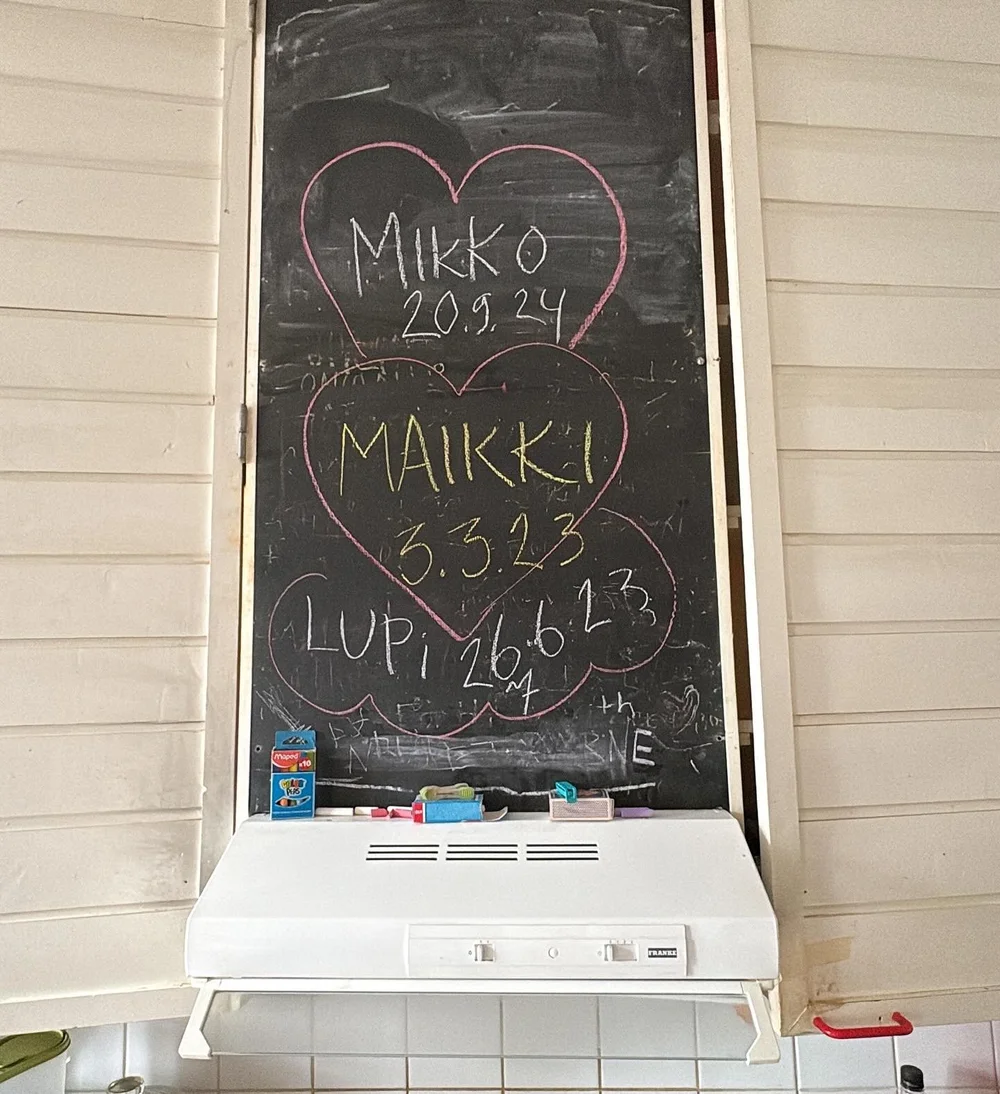 MIKKO
20.9.24
MAIKKI
3.3.23
LUPi 26.6 23
th
NE
Maped
x10
COLOR'
PEPS
FRANKE